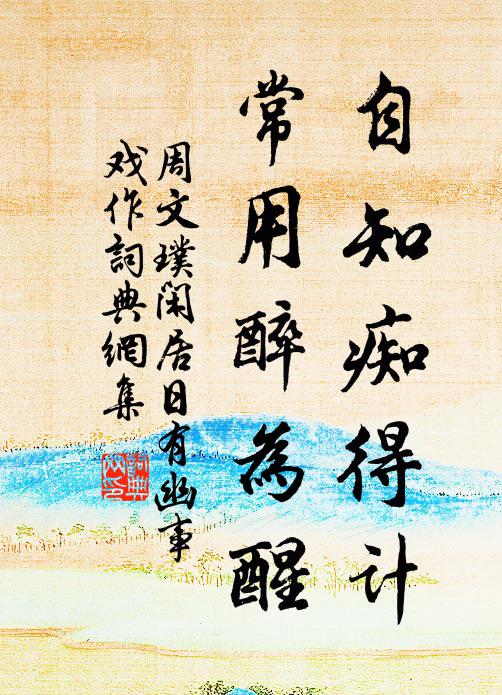 自知痴得计
常用醉為醒
周文璞閑居日有幽事
戏作詞典網集
詞典